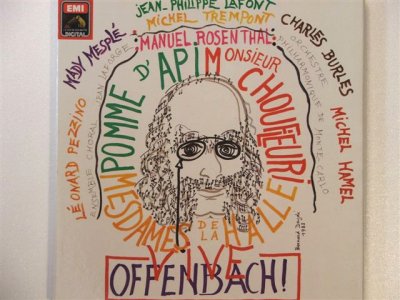 EMI
DIGITAL
JEAN-PHILIPPE LAFONT
MICHEL TREMPONT
MANUEL ROSENTHAL
MADY MESPLÉ
CHARLES BURLES
LÉONARD PEZZINO
ENSEMBLE CHORAL JEAN LAFORGE
ORCHESTRE PHILHARMONIQUE DE MONTE-CARLO
MICHEL HAMEL
POMME D'API
MONSIEUR CHOUFLEURI
MESDAMES DE LA HALLE
VIVE
OFFENBACH!
1983